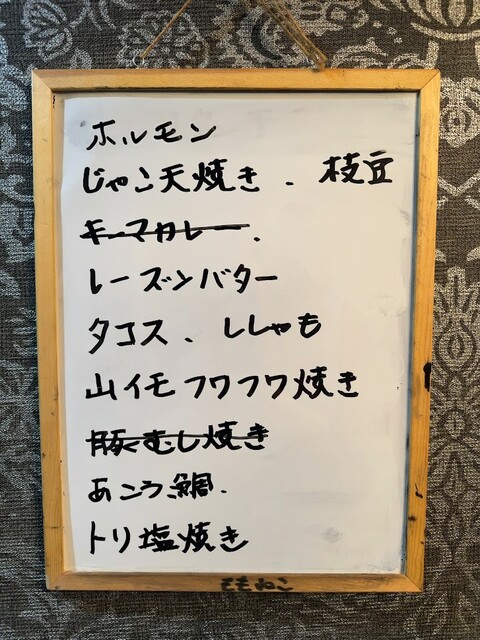 ホルモン
じゃこ天焼き . 枝豆
キーマカレー .
レーズンバター
タコス 、 ししゃも
山イモフワフワ焼き
豚むし焼き
あこう鯛 .
トリ塩焼き
ももねこ